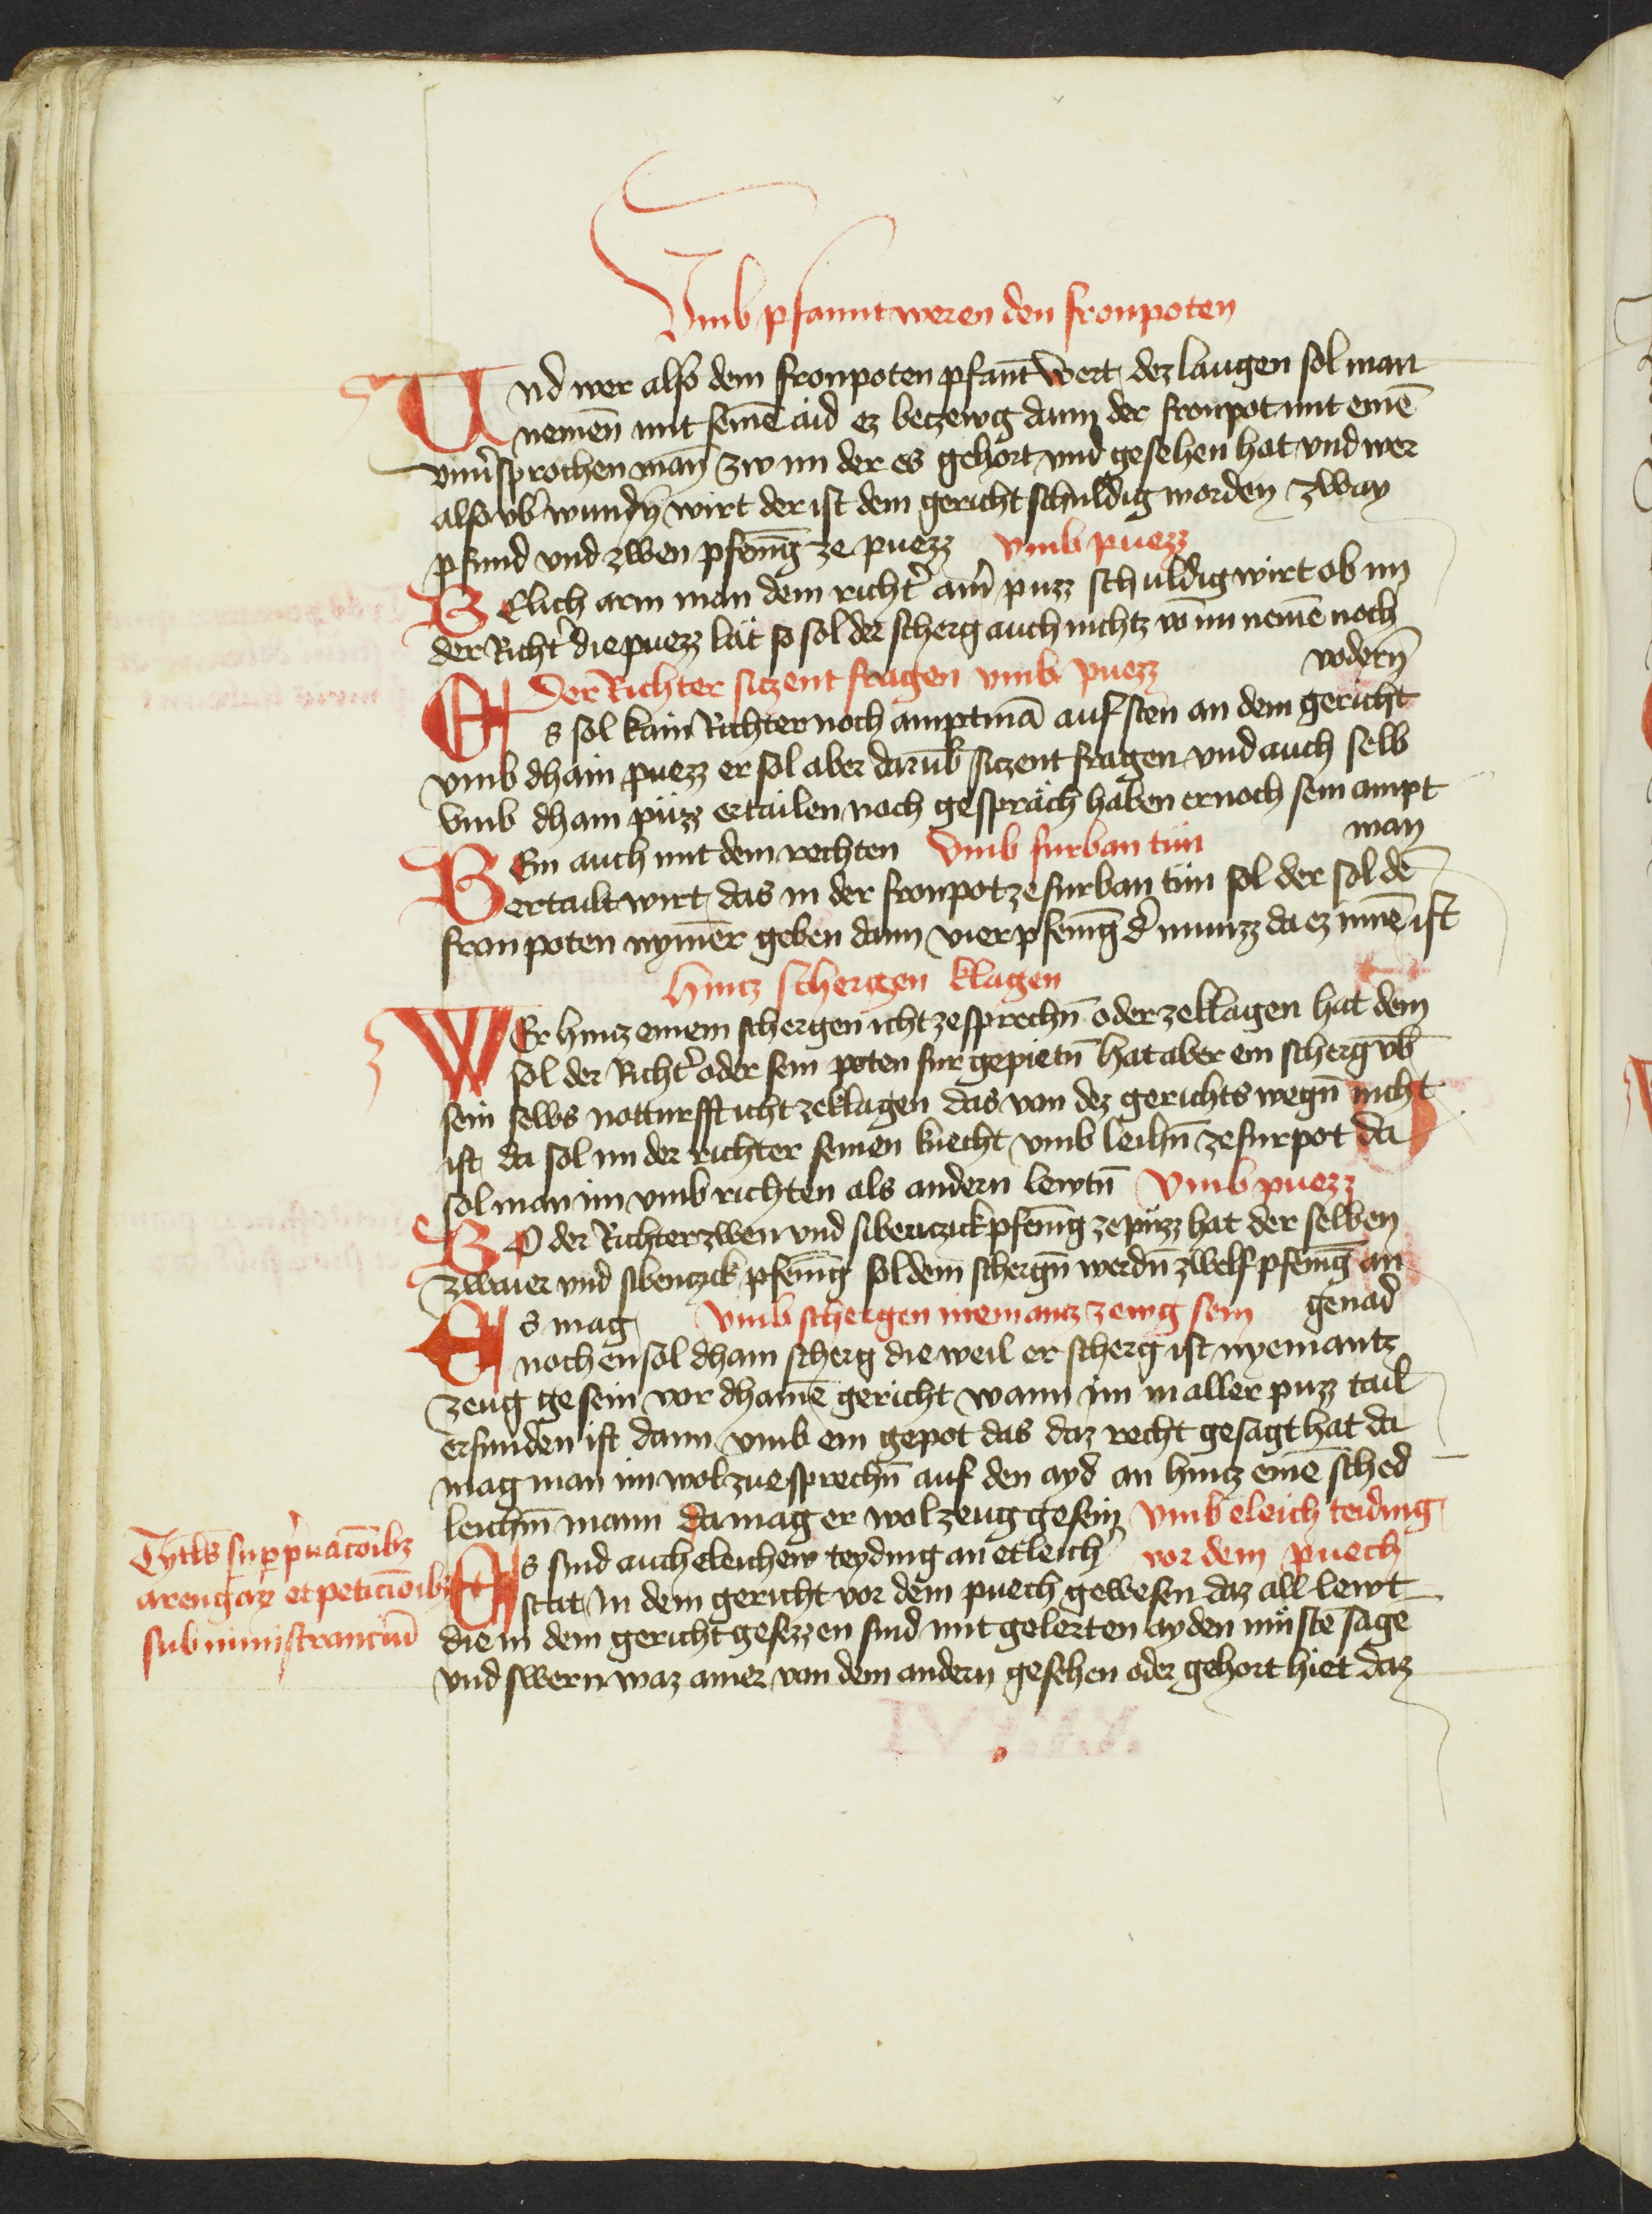 Vmb pfannt weren den fronpoten
Und wer also dem fronpoten pfant wert dez laugen sol man
nemen̄ mit seinē aid ez beczewg dann der fronpot mit einē
vnu̕sprochen man zw im der es gehort vnd gesehen hat vnd wer
also vb̕wunden̄ wirt der ist dem gericht schuldig worden zway
pfund vnd zwen pfenīg ze puezz vmb puezz
Welich arm man dem richt̕ ain̕ puzz schuldig wirt ob im
der Richt̕ die puezz lät so sol der scherg auch nichtz vō im nemē noch
vodern̄
Der Richter siczent fragen vmb puezz
Es sol kain Richter noch amptmā auf sten an dem gericht
vmb dhain puezz er sol aber darūb siczent fragen vnd auch selb
vmb dhain püzz ertailen noch gespräch haben er noch sein ampt
man
Wem auch mit dem rechten vmb furban tün
ertailt wirt das in der fronpot ze furban tün sol der sol dē
fronpoten nymēr geben dann vier pfenīg d̕ munzz da ez innē ist
hincz schergen klagen
Wer hincz einem schergen icht ze sprechn̄ oder ze klagen hat dem
sol der Richt̕ oder sein poten fur gepietn̄ hat aber ein scherg vb̄
sein selbs notturfft icht ze klagen das von dez gerichts wegn̄ nicht
ist da sol im der richter seinen knecht vmb leihn̄ ze furpot da
sol man im vmb richten als andern lewtn̄ vmb puezz
So der Richter zwen vnd sibenczick pfenīg ze püzz hat der selben
zwaier vnd sibenczick pfenīg sol dem schergn̄ werdn̄ zwelf pfenīg an
genad
Es mag vmb schergen niemancz zewg sein
noch ensol dhain scherg die weil er scherg ist nyemantz
zeug gesein vor dhainē gericht wann im in aller puzz tail
erfunden ist dann vmb ein gepot das daz recht gesagt hat da
mag man im wol zue sprechn̄ auf den ayd an hincz einē sched
leichn̄ mann da mag er wol zeug gesein vmb eleich teiding
Es sind auch eleichew teyding an etleich̕ vor dem puech
stat in dem gericht vor dem puech gewesen daz all lewt
die in dem gericht gesezzen sind mit gelerten ayden müstē sagē
vnd swern waz ainer von dem andern gesehen oder gehort hiet daz
Tytl̄s sup̱ p̕uacōibz
arengaꝝ et peticiōibz
sub ministranciū